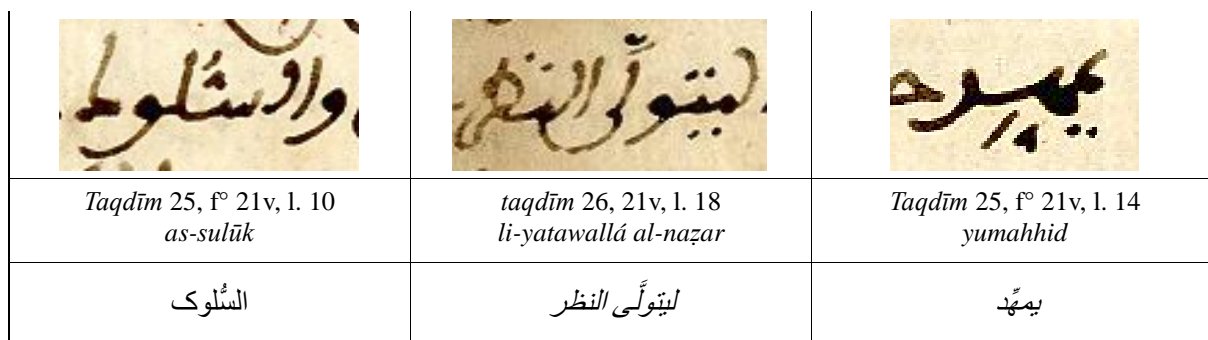 والسُلوك
ليتولّى النظر
يمهد
Taqdīm 25, f° 21v, l. 10
as-sulūk
taqdīm 26, 21v, l. 18
li-yatawallá al-naẓar
Taqdīm 25, f° 21v, l. 14
yumahhid
السُّلوک
ليتولَّى النظر
يمهِّد